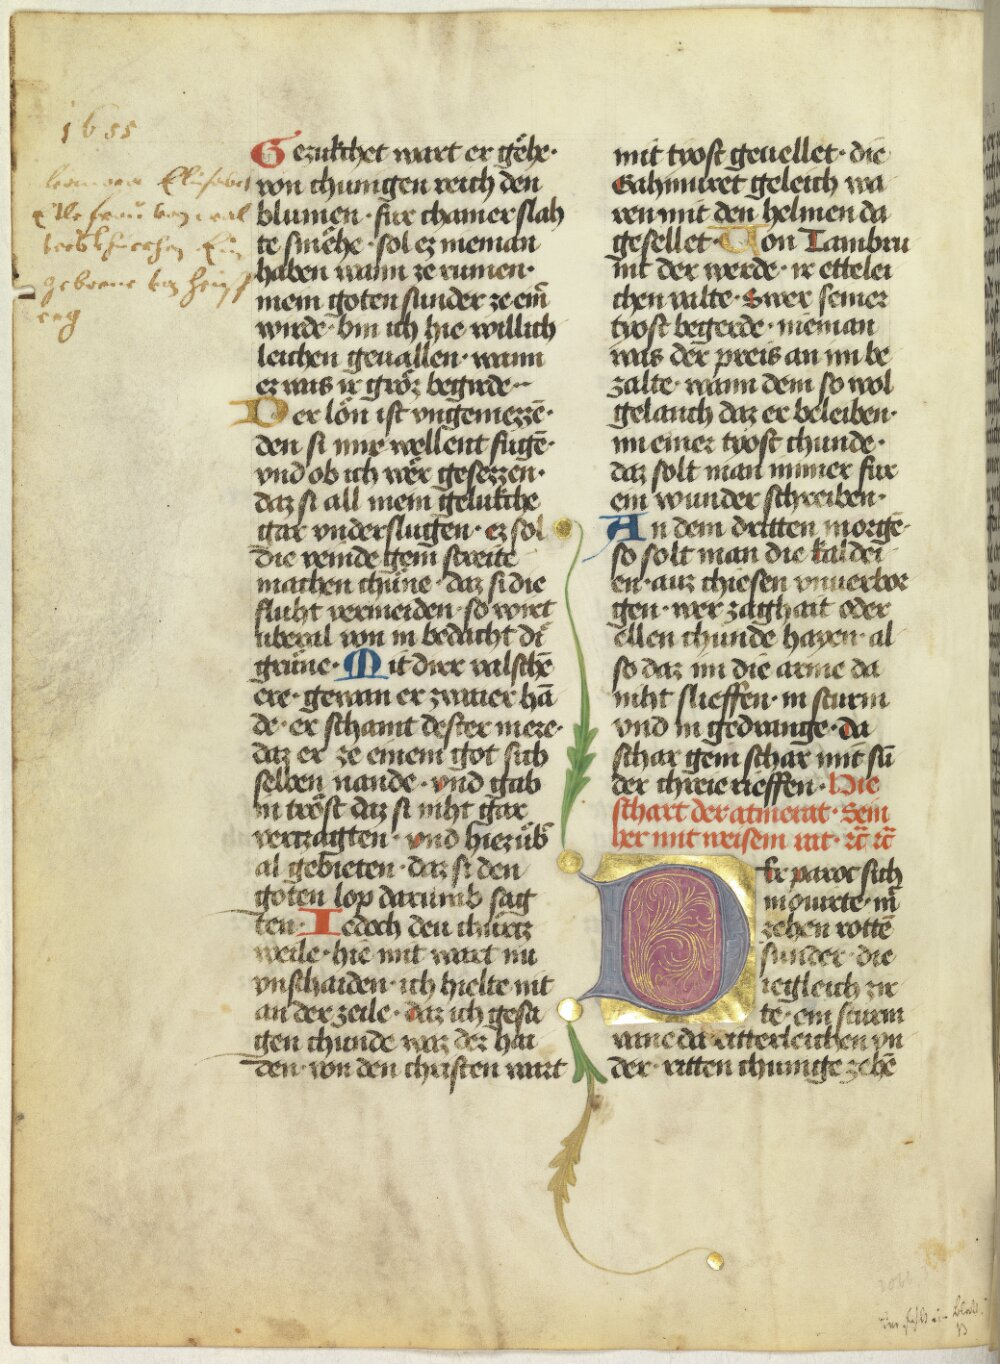 1655
Elisabet
Gezukchet wart er gëhe·
von chunigen reich den
blumen· fur chamerslah
te smëhe· sol ez nieman
haben wann ze rumen·
mein goten sunder ze eim̄
wirde· bin ich hie willich
leichen geuallen· wann
ez was ir gröz begirde··
Der lön ist vngemezzē·
den si mir wellent fugē·
vnd ob ich wër gesezzen·
daz si all mein gelukche
gar vnderslugen· ez sol
die veinde gein streite
machen chüne· daz si die
fluht vermeiden· so wirt
uberal von in bedacht di
grüne· Mit diер valschē
ere· gewan er zwaier hā
de· er schamt dester mere·
daz er ze einem got sich
selben nande· vnd gab
in tröst daz si niht gar
verzagten· vnd hiez üb̄
al gebieten· daz si den
goten lop darumb sag
ten· Iedoch den churtz
weile· hie mit wart nu
vnschaiden· ich hielte nit
an der zeile· daz ich gesa
gen chunde waz der hai
den· von den christen wart
mit trost geuellet· die
Gahmuret geleich wa
ren mit den helmen da
gesellet· Von Tambru
nit der werde· ir ettelei
chen valte· Swer seiner
trost begerde· nieman
was der preis an im be
zalte· wann dem so wol
gelauch daz er beleiben·
im einer trost chunde·
daz solt man immer fur
ein wunder schreiben·
An dem dritten morgē·
so solt man die kaldei
en· auz chiesen vnuerbor
gen· wer zaghait oder
ellen chunde hazen· al
so daz im die arme da
niht slieffen· in sturm
vnd in gedrange· da
schar gein schar mit sū
der chreie rieffen· Hie
schart der atmerat· Sein
her mit weisem rat· etc̄ etc̄
Er paroc sich
mouirte· in
zehen rottē
sunder· die
iegleich zir
te· ein sturm
vane da ritterleichen vn
der· ritten chunige zehē